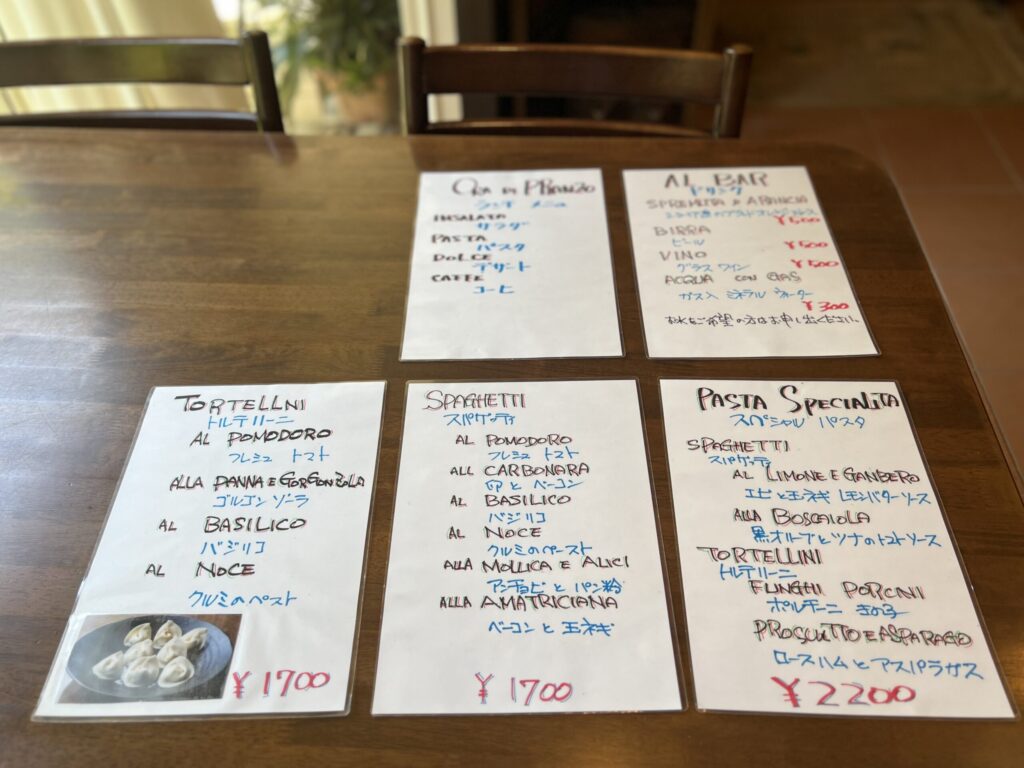 ORA DI PRANZO
ランチ メニュ
INSALATA
サラダ
PASTA
パスタ
DOLCE
デザート
CAFFE
コーヒ
AL BAR
ドリンク
SPREMUTA D ARANCIA
¥600
BIRRA
ビール
¥500
VINO
グラス ワイン
¥500
ACQUA CON GAS
ガス入 ミネラル ウォーター
¥300
お水をご希望の方はお申し出ください。
TORTELLNI
トルテリーニ
AL POMODORO
フレシュ トマト
ALLA PANNA E GORGONZOLA
ゴルゴンゾーラ
AL BASILICO
バジリコ
AL NOCE
クルミのペスト
¥1700
SPAGHETTI
スパゲッティ
AL POMODORO
フレシュ トマト
ALL CARBONARA
卵と ベーコン
AL BASILICO
バジリコ
AL NOCE
クルミのペースト
ALLA MOLLICA E ALICI
アンチョビと パン粉
ALLA AMATRICIANA
ベーコンと 玉ネギ
¥1700
PASTA SPECIALITA
スペシャル パスタ
SPAGHETTI
スパゲッティ
AL LIMONE E GANBERO
エビと玉ネギ レモンバターソース
ALLA BOSCAIOLA
黒オリーブとツナのトマトソース
TORTELLINI
トルテリーニ
FUNGHI PORCINI
ポルチーニ きのこ
PROSCIUTTO E ASPARAGO
ロースハムとアスパラガス
¥2200